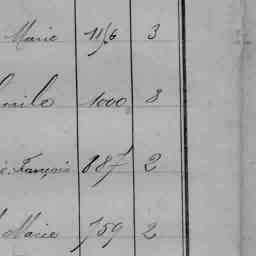 Marie 1156 3
mile 1000 8
é. François 887 2
Marie 759 2